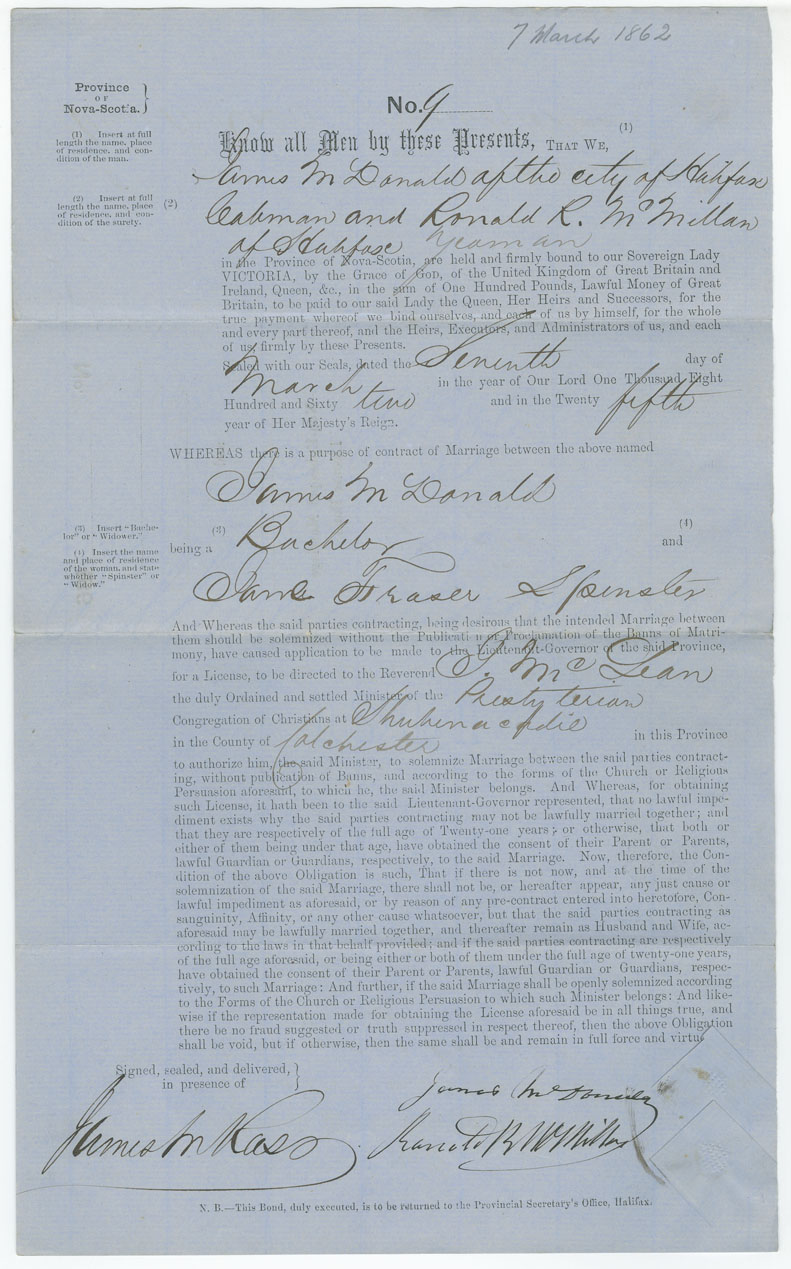 7 March 1862
Province
OF
Nova-Scotia.
No. 9
(1) Insert at full
length the name, place
of residence, and con-
dition of the man.
Know all Men by these Presents, THAT WE, (1)
James McDonald of the city of Halifax
(2) Insert at full
length the name, place
of residence, and con-
dition of the surety.
(2) Cabman and Ronald R. McMillan
of Halifax Yeoman
in the Province of Nova-Scotia, are held and firmly bound to our Sovereign Lady
VICTORIA, by the Grace of GOD, of the United Kingdom of Great Britain and
Ireland, Queen, &c., in the sum of One Hundred Pounds, Lawful Money of Great
Britain, to be paid to our said Lady the Queen, Her Heirs and Successors, for the
true payment whereof we bind ourselves, and each of us by himself, for the whole
and every part thereof, and the Heirs, Executors, and Administrators of us, and each
of us, firmly by these Presents.
Sealed with our Seals, dated the Seventh day of
March in the year of Our Lord One Thousand Eight
Hundred and Sixty two and in the Twenty fifth
year of Her Majesty's Reign.
WHEREAS there is a purpose of contract of Marriage between the above named
James McDonald
(3) Insert "Bache-
lor" or "Widower."
(3) (4)
being a Bachelor and
(4) Insert the name
and place of residence
of the woman, and state
whether "Spinster" or
"Widow."
Jane Fraser Spinster
And Whereas the said parties contracting, being desirous that the intended Marriage between
them should be solemnized without the Publication or Proclamation of the Banns of Matri-
mony, have caused application to be made to the Lieutenant-Governor of the said Province,
for a License, to be directed to the Reverend J. McLean
the duly Ordained and settled Minister of the Presbyterian
Congregation of Christians at Shubenacadie
in the County of Colchester in this Province
to authorize him, the said Minister, to solemnize Marriage between the said parties contract-
ing, without publication of Banns, and according to the forms of the Church or Religious
Persuasion aforesaid, to which he, the said Minister belongs. And Whereas, for obtaining
such License, it hath been to the said Lieutenant-Governor represented, that no lawful impe-
diment exists why the said parties contracting may not be lawfully married together; and
that they are respectively of the full age of Twenty-one years; or otherwise, that both or
either of them being under that age, have obtained the consent of their Parent or Parents,
lawful Guardian or Guardians, respectively, to the said Marriage. Now, therefore, the Con-
dition of the above Obligation is such, That if there is not now, and at the time of the
solemnization of the said Marriage, there shall not be, or hereafter appear, any just cause or
lawful impediment as aforesaid, or by reason of any pre-contract entered into heretofore, Con-
sanguinity, Affinity, or any other cause whatsoever, but that the said parties contracting as
aforesaid may be lawfully married together, and thereafter remain as Husband and Wife, ac-
cording to the laws in that behalf provided; and if the said parties contracting are respectively
of the full age aforesaid, or being either or both of them under the full age of twenty-one years,
have obtained the consent of their Parent or Parents, lawful Guardian or Guardians, respec-
tively, to such Marriage: And further, if the said Marriage shall be openly solemnized according
to the Forms of the Church or Religious Persuasion to which such Minister belongs: And like-
wise if the representation made for obtaining the License aforesaid be in all things true, and
there be no fraud suggested or truth suppressed in respect thereof, then the above Obligation
shall be void, but if otherwise, then the same shall be and remain in full force and virtue
Signed, sealed, and delivered,
in presence of
James McDonald
James M Ross
Ranald R McMillan
N. B.—This Bond, duly executed, is to be returned to the Provincial Secretary's Office, Halifax.